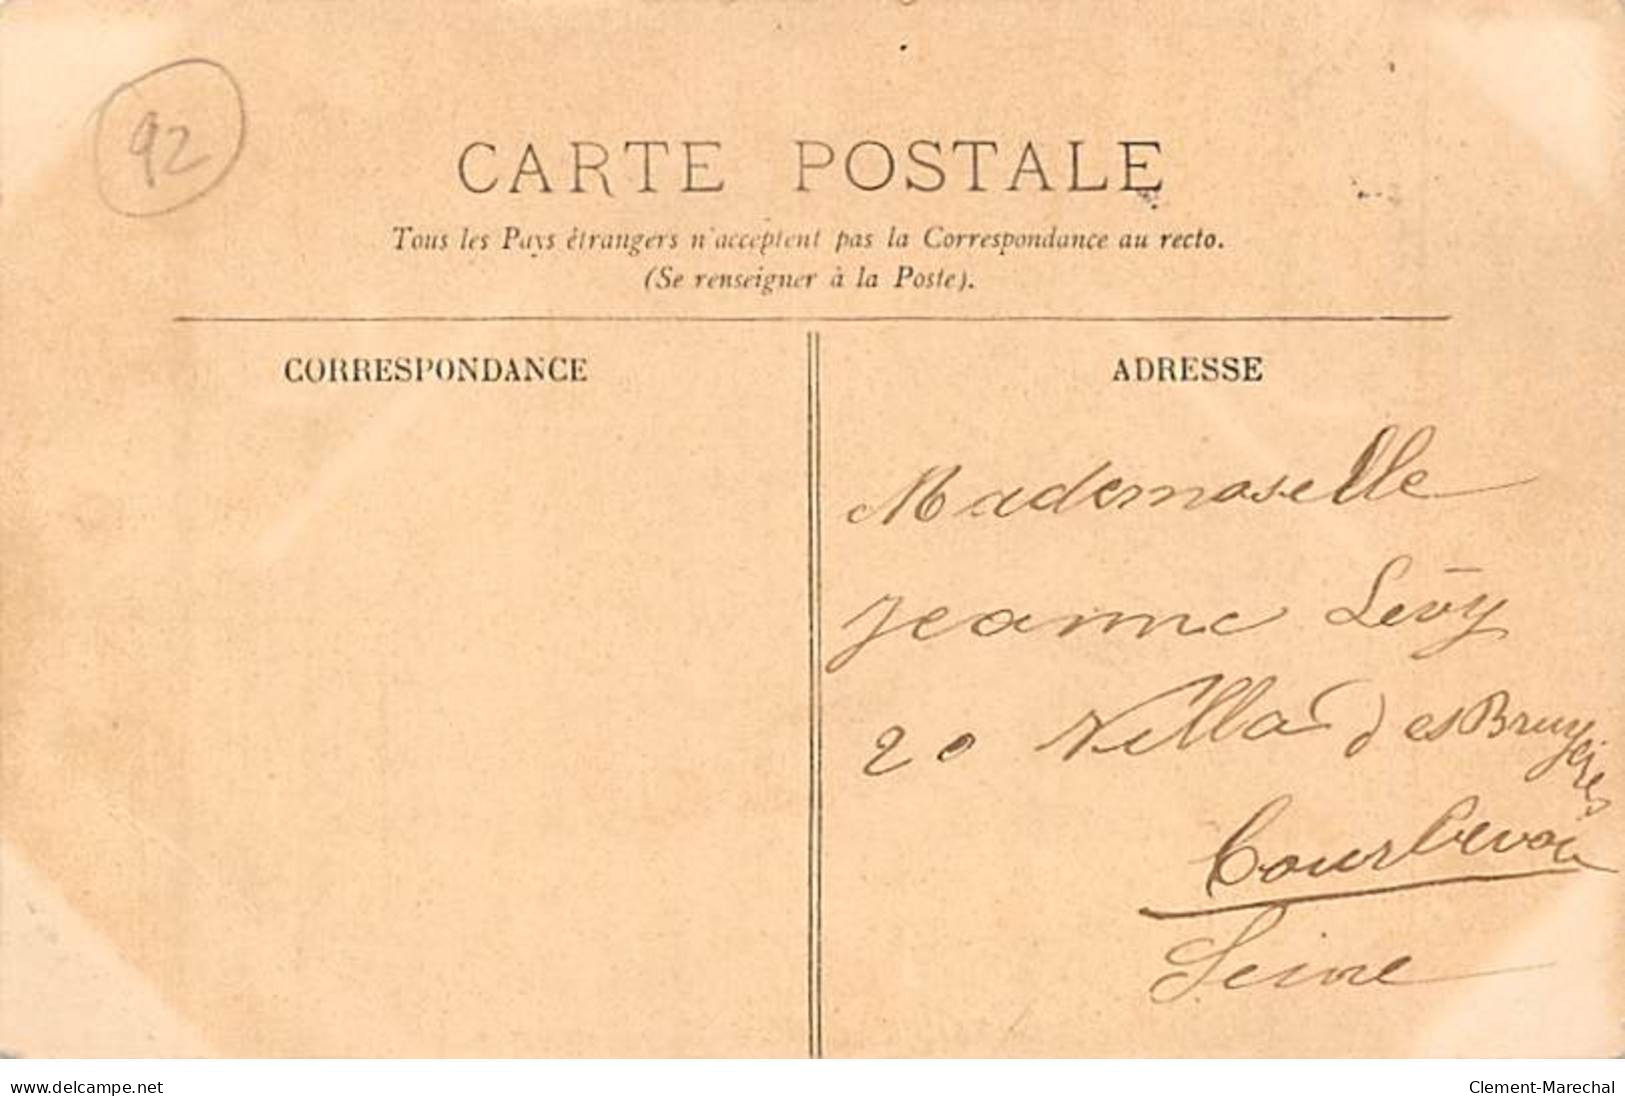 92
CARTE POSTALE
Tous les Pays étrangers n'acceptent pas la Correspondance au recto.
(Se renseigner à la Poste).
CORRESPONDANCE
ADRESSE
Mademoselle
Jeanne Lévy
20 Villa des Bruyères
Courbevoie
Seine
www.delcampe.net
Clement-Marechal